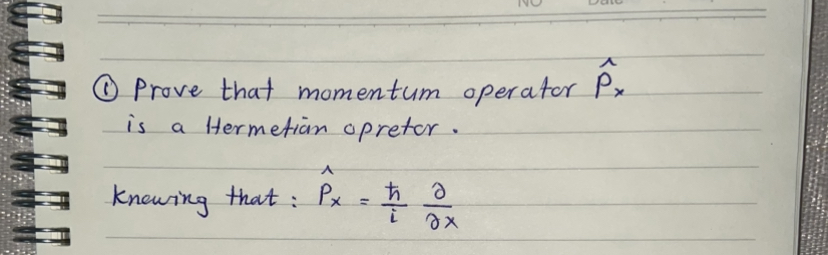 NO Date
① Prove that momentum operator P̂x
is a Hermetian opretor.
Knowing that : P̂x = ħ/i ∂/∂x